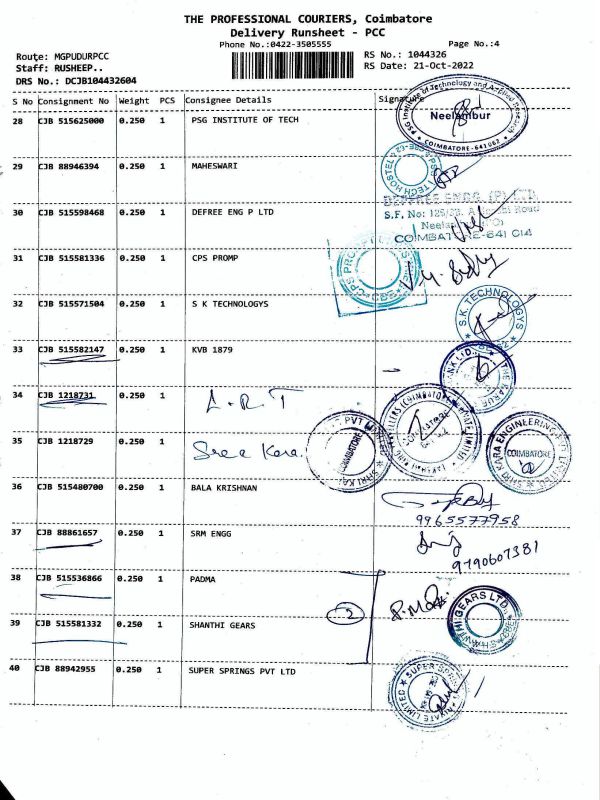 THE PROFESSIONAL COURIERS, Coimbatore
Delivery Runsheet - PCC
Phone No.:0422-3505555 Page No.:4
Route: MGPUDURPCC RS No.: 1044326
Staff: RUSHEEP.. RS Date: 21-Oct-2022
DRS No.: DCJB104432604
S No Consignment No Weight PCS Consignee Details Signature
28 CJB 515625000 0.250 1 PSG INSTITUTE OF TECH
PSG Institute of Technology and Applied Research
Neelambur
COIMBATORE-641062
29 CJB 88946394 0.250 1 MAHESWARI
30 CJB 515598468 0.250 1 DEFREE ENG P LTD
DEFREE ENGG. (P) LTD
S.F. No: Road
COIMBATORE-641 014
31 CJB 515581336 0.250 1 CPS PROMP
32 CJB 515571504 0.250 1 S K TECHNOLOGYS
S.K. TECHNOLOGYS
33 CJB 515582147 0.250 1 KVB 1879
34 CJB 1218731 0.250 1 L.R.T
35 CJB 1218729 0.250 1 Sree Kara.
SHRI KARA ENGINEERING
COIMBATORE
36 CJB 515480700 0.250 1 BALA KRISHNAN
9965577958
37 CJB 88861657 0.250 1 SRM ENGG
9790607381
38 CJB 515536866 0.250 1 PADMA
2
39 CJB 515581332 0.250 1 SHANTHI GEARS
SHANTHI GEARS LTD.
40 CJB 88942955 0.250 1 SUPER SPRINGS PVT LTD
PRIVATE LIMITED